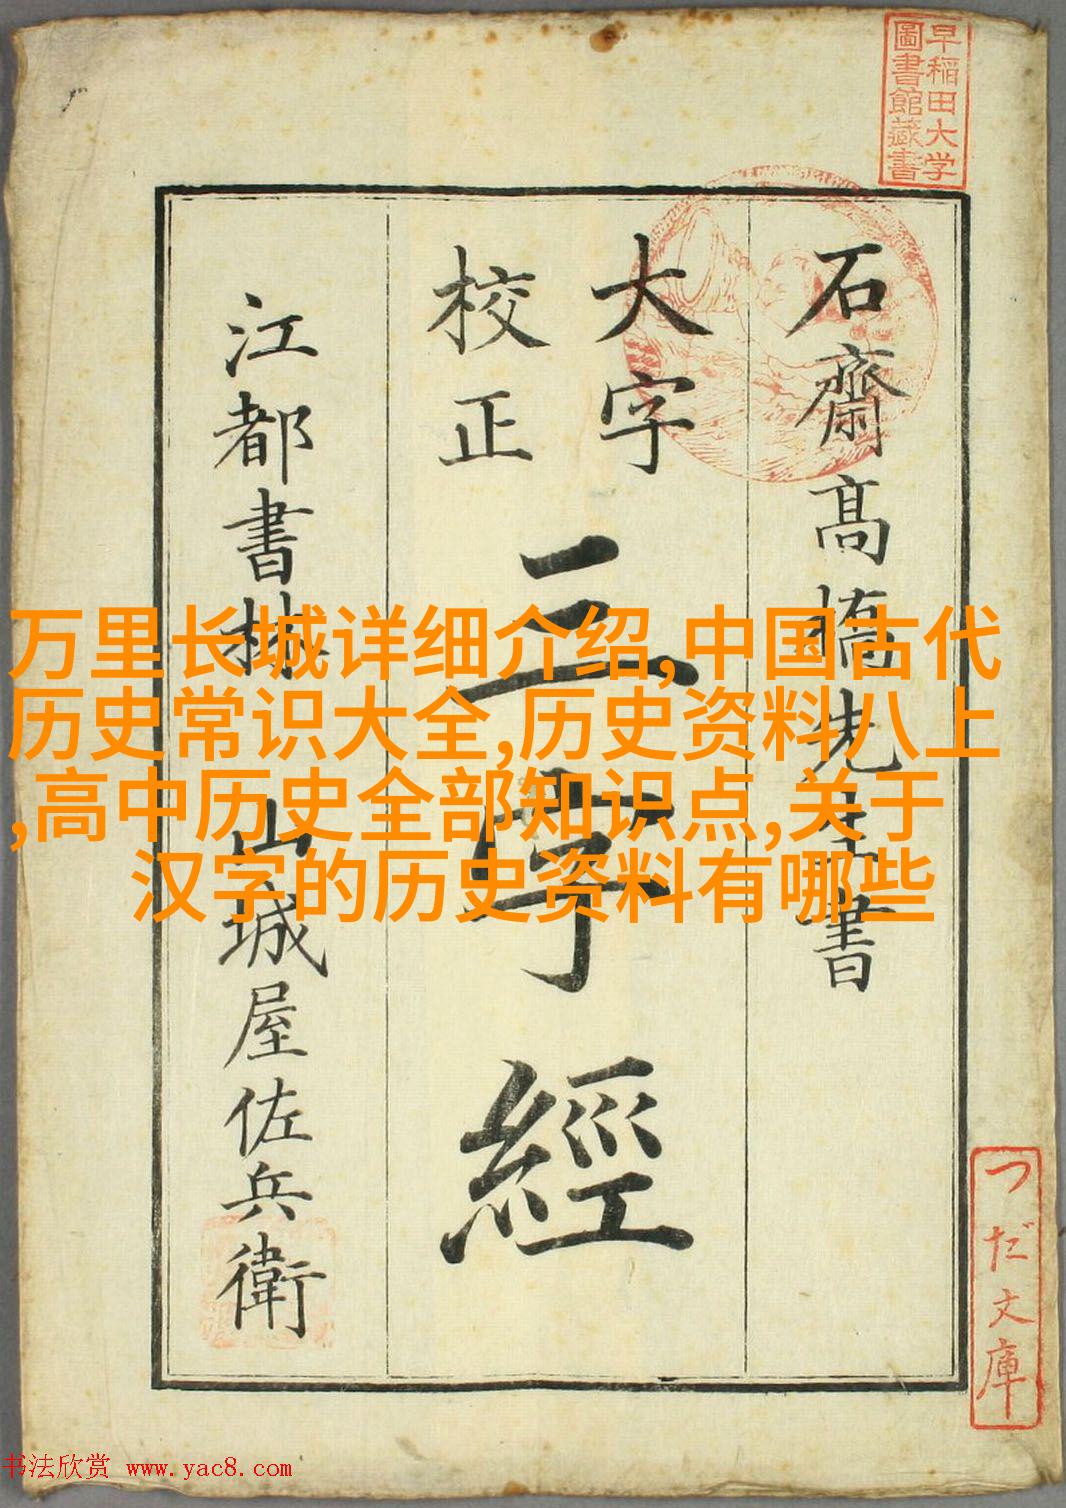 早稲田大学
圖書館藏書
石齋髙橋先生書
大字
校正
三字經
江都書林 山城屋佐兵衛
万里长城详细介绍,中国古代
历史常识大全,历史资料八上
,高中历史全部知识点,关于
汉字的历史资料有哪些
つだ文庫
书法欣赏 www.yac8.com